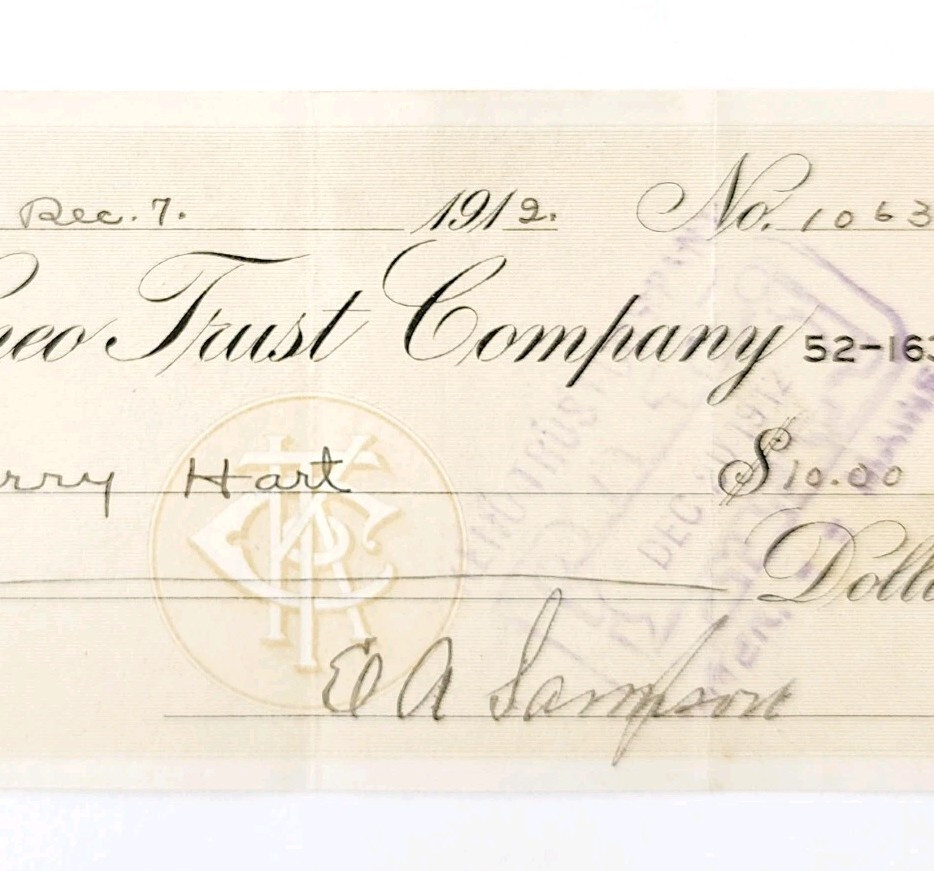 Dec. 7. 1912. No. 1063
neo Trust Company 52-163
rry Hart $10.00
Dolla
E A Sampson
TRUST
DEC 1912